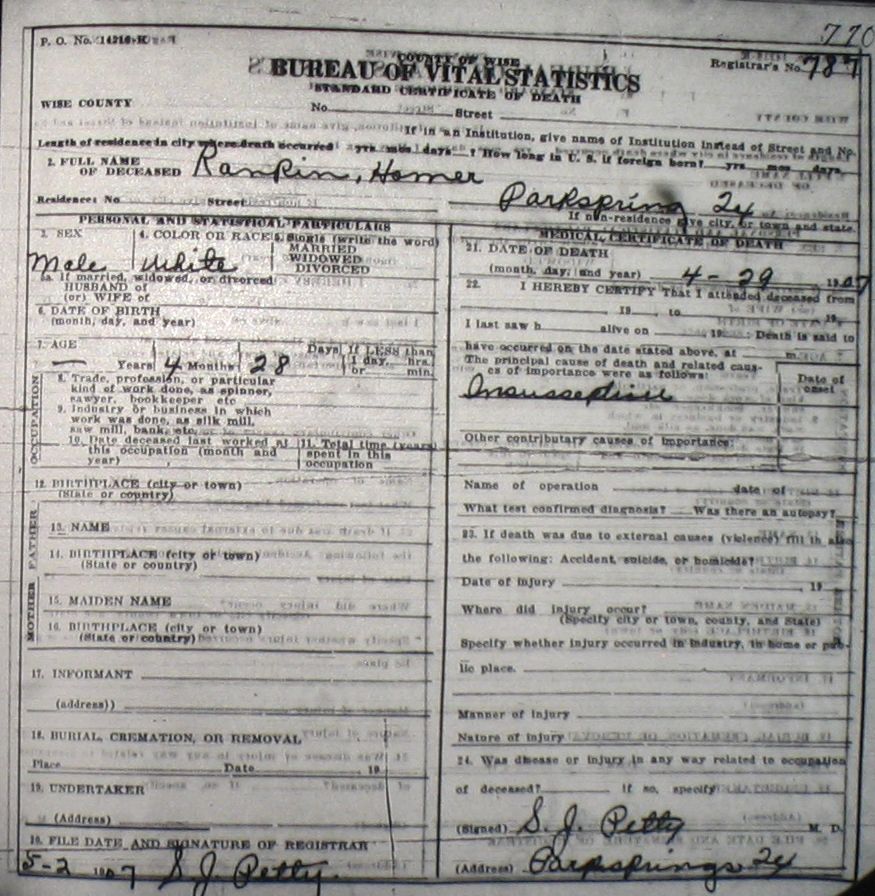 770
P. O. No. 14216-K
COUNTY OF WISE
BUREAU OF VITAL STATISTICS
Registrar's No. 787
STANDARD CERTIFICATE OF DEATH
WISE COUNTY No. Street
If in an Institution, give name of Institution instead of Street and No.
Length of residence in city where death occurred yrs. mos. days. ? How long in U. S. if foreign born? yrs. mos. days.
2. FULL NAME OF DECEASED Rankin, Homer
Residence: No Street Parkspring Tx
If non-residence give city, or town and state.
PERSONAL AND STATISTICAL PARTICULARS
3. SEX 4. COLOR OR RACE 5. Single (write the word)
MARRIED
WIDOWED
DIVORCED
Male White
5a. If married, widowed, or divorced
HUSBAND of
(or) WIFE of
6. DATE OF BIRTH
(month, day, and year)
7. AGE Days If LESS than
— Years 4 Months 28 1 day, hrs.
or min.
OCCUPATION
8. Trade, profession, or particular
kind of work done, as spinner,
sawyer, bookkeeper etc
9. Industry or business in which
work was done, as silk mill,
saw mill, bank, etc.
10. Date deceased last worked at
this occupation (month and
year)
11. Total time (years)
spent in this
occupation
12. BIRTHPLACE (city or town)
(State or country)
FATHER
13. NAME
14. BIRTHPLACE (city or town)
(State or country)
MOTHER
15. MAIDEN NAME
16. BIRTHPLACE (city or town)
(State or country)
17. INFORMANT
(address))
18. BURIAL, CREMATION, OR REMOVAL
Place Date 19
19. UNDERTAKER
(Address)
FILE DATE AND SIGNATURE OF REGISTRAR
5-2 1907 S. J. Petty.
MEDICAL CERTIFICATE OF DEATH
21. DATE OF DEATH
(month, day, and year) 4-29 1907
22. I HEREBY CERTIFY That I attended deceased from
, 19 , to , 19
I last saw h alive on , 19 : Death is said to
have occurred on the date stated above, at m.
The principal cause of death and related caus-
es of importance were as follows:
Date of
onset
Other contributary causes of importance:
Name of operation date of
What test confirmed diagnosis? Was there an autopsy?
23. If death was due to external causes (violence) fill in also
the following: Accident, suicide, or homicide?
Date of injury 19
Where did injury occur?
(Specify city or town, county, and State)
Specify whether injury occurred in industry, in home or pub-
lic place.
Manner of injury
Nature of injury
24. Was disease or injury in any way related to occupation
of deceased? If so, specify
(Signed) S. J. Petty M. D.
(Address) Parksprings Tx